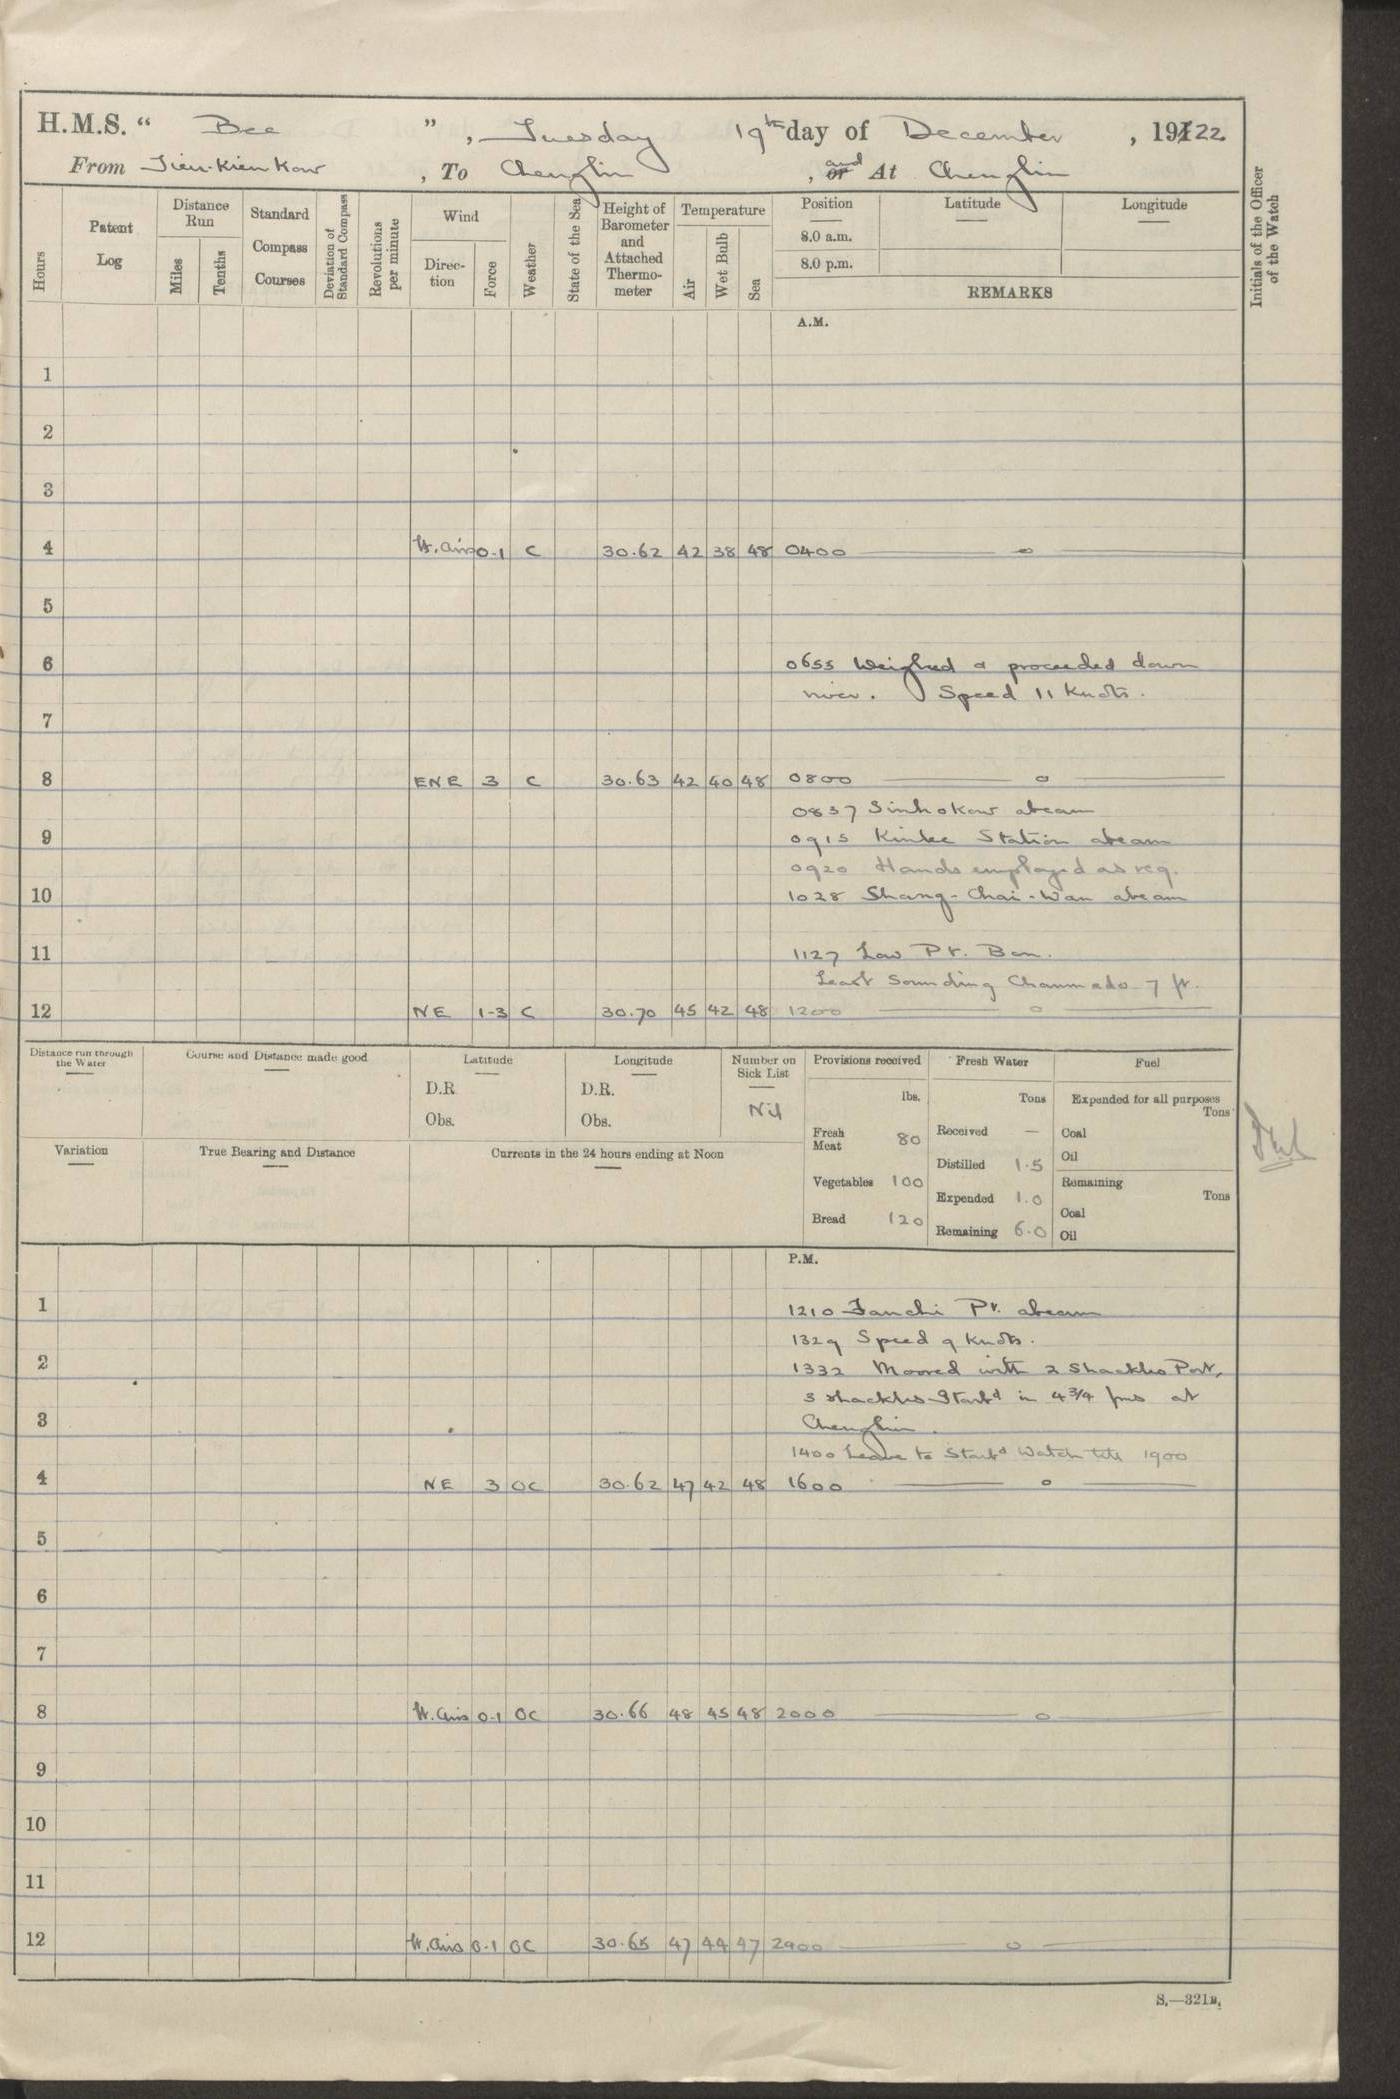 H.M.S. “ Bee ” , Tuesday 19th day of December , 1922
From Tien-Kien Kow , To Chenglin , and or At Chenglin
Hours
Patent Log
Distance Run
Miles
Tenths
Standard Compass Courses
Deviation of Standard Compass
Revolutions per minute
Wind
Direc-tion
Force
Weather
State of the Sea
Height of Barometer and Attached Thermo-meter
Temperature
Air
Wet Bulb
Sea
Position
8.0 a.m.
8.0 p.m.
Latitude
Longitude
REMARKS
Initials of the Officer of the Watch
A.M.
1
2
3
4 Lt. airs 0-1 C 30.62 42 38 48 0400 — o —
5
6 0655 Weighed & proceeded down
river. Speed 11 Knots.
7
8 ENE 3 C 30.63 42 40 48 0800 — o —
0837 Sinhokow abeam
9 0915 Kinlee Station abeam
0920 Hands employed as req.
10 1028 Shang-Chai-Wan abeam
11 1127 Low Pt. Bn.
Least Sounding Channel 7 ft.
12 NE 1-3 C 30.70 45 42 48 1200 — o —
Distance run through the Water
Course and Distance made good
Latitude
D.R
Obs.
Longitude
D.R.
Obs.
Number on Sick List
Nil
Provisions received
lbs.
Fresh Meat 80
Vegetables 100
Bread 120
Fresh Water
Tons
Received —
Distilled 1.5
Expended 1.0
Remaining 6.0
Fuel
Expended for all purposes
Tons
Coal
Oil
Remaining
Tons
Coal
Oil
Variation
True Bearing and Distance
Currents in the 24 hours ending at Noon
P.M.
1 1210 Fanchi Pt. abeam
1329 Speed 9 Knots.
2 1332 Moored with 2 Shackles Port,
3 shackles Starbd in 4¾ fms at
3 Chenglin.
1400 Leave to Starbd Watch till 1900
4 NE 3 OC 30.62 47 42 48 1600 — o —
5
6
7
8 Lt. airs 0-1 OC 30.66 48 45 48 2000 — o —
9
10
11
12 Lt. airs 0-1 OC 30.65 47 44 47 2400 — o —
S.—321B.